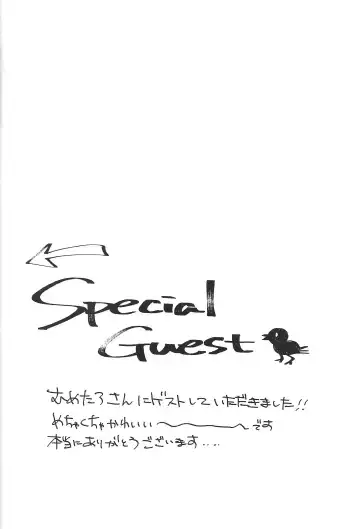 Special
Guest
むめたろさんにゲストしていただきました!!
めちゃくちゃかわいい〜〜〜です
本当にありがとうございます....